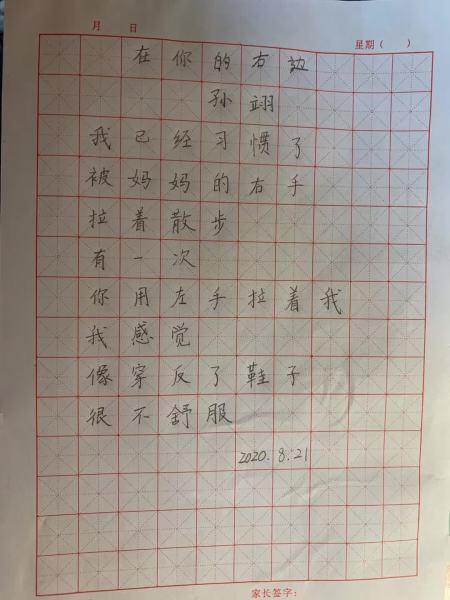 月 日 星期( )
在你的右边
孙翊
我已经习惯了
被妈妈的右手
拉着散步
有一次
你用左手拉着我
我感觉
像穿反了鞋子
很不舒服
2020.8.21
家长签字: